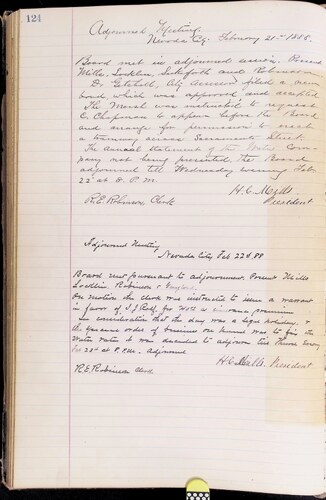 124
Adjourned Meeting.
Nevada City. February 21st 1888.
Board met in adjourned session. Present
Mills, Locklin, and Robinson
Dr. Getchell, City Assessor filed a new
bond which was approved and accepted
The Marshal was instructed to request
C. Chapman to appear before the Board
and arrange for permission to erect
a tramway across Sacramento Street.
The Annual statement of the Water Com-
pany not being presented, the Board
adjourned till Wednesday evening Feb.
22d at 8. P.M.
H. C. Mills
R. E. Robinson Clerk President
Adjourned Meeting
Nevada City Feb 22d. 88
Board met pursuant to adjournment. Present Mills
Locklin, Robinson & Gaylord.
On motion the Clerk was instructed to issue a warrant
in favor of T. J. for insurance premium
In consideration that the day was a legal holiday, &
the especial order of business on hand was to fix the
Water rates it was decided to adjourn till Thursday evening
Feb 23d at 8 P.M. Adjourned
H. C. Mills President
R. E. Robinson Clerk